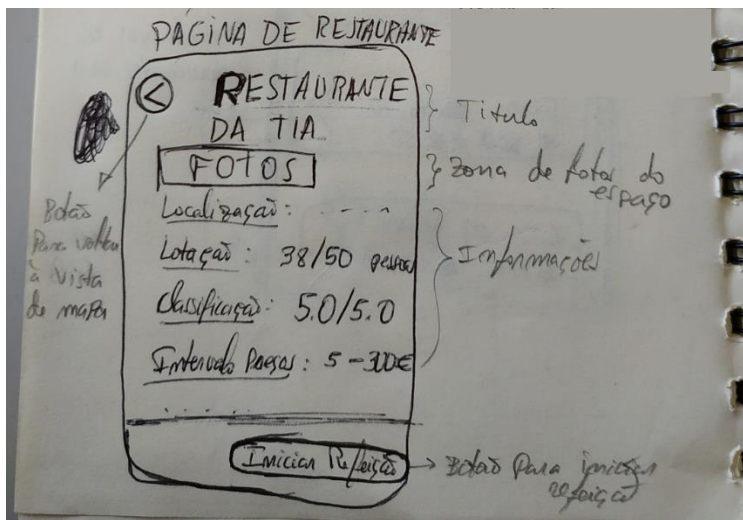 PÁGINA DE RESTAURANTE
<
RESTAURANTE
DA TIA
FOTOS
Localização: - - - -
Lotação: 38/50 pessoas
Classificação: 5.0/5.0
Intervalo Preços: 5-300€
Iniciar Refeição
Botão
Para voltar
à vista
de mapa
Titulo
Zona de fotos do
espaço
Informações
Botão Para iniciar
refeição